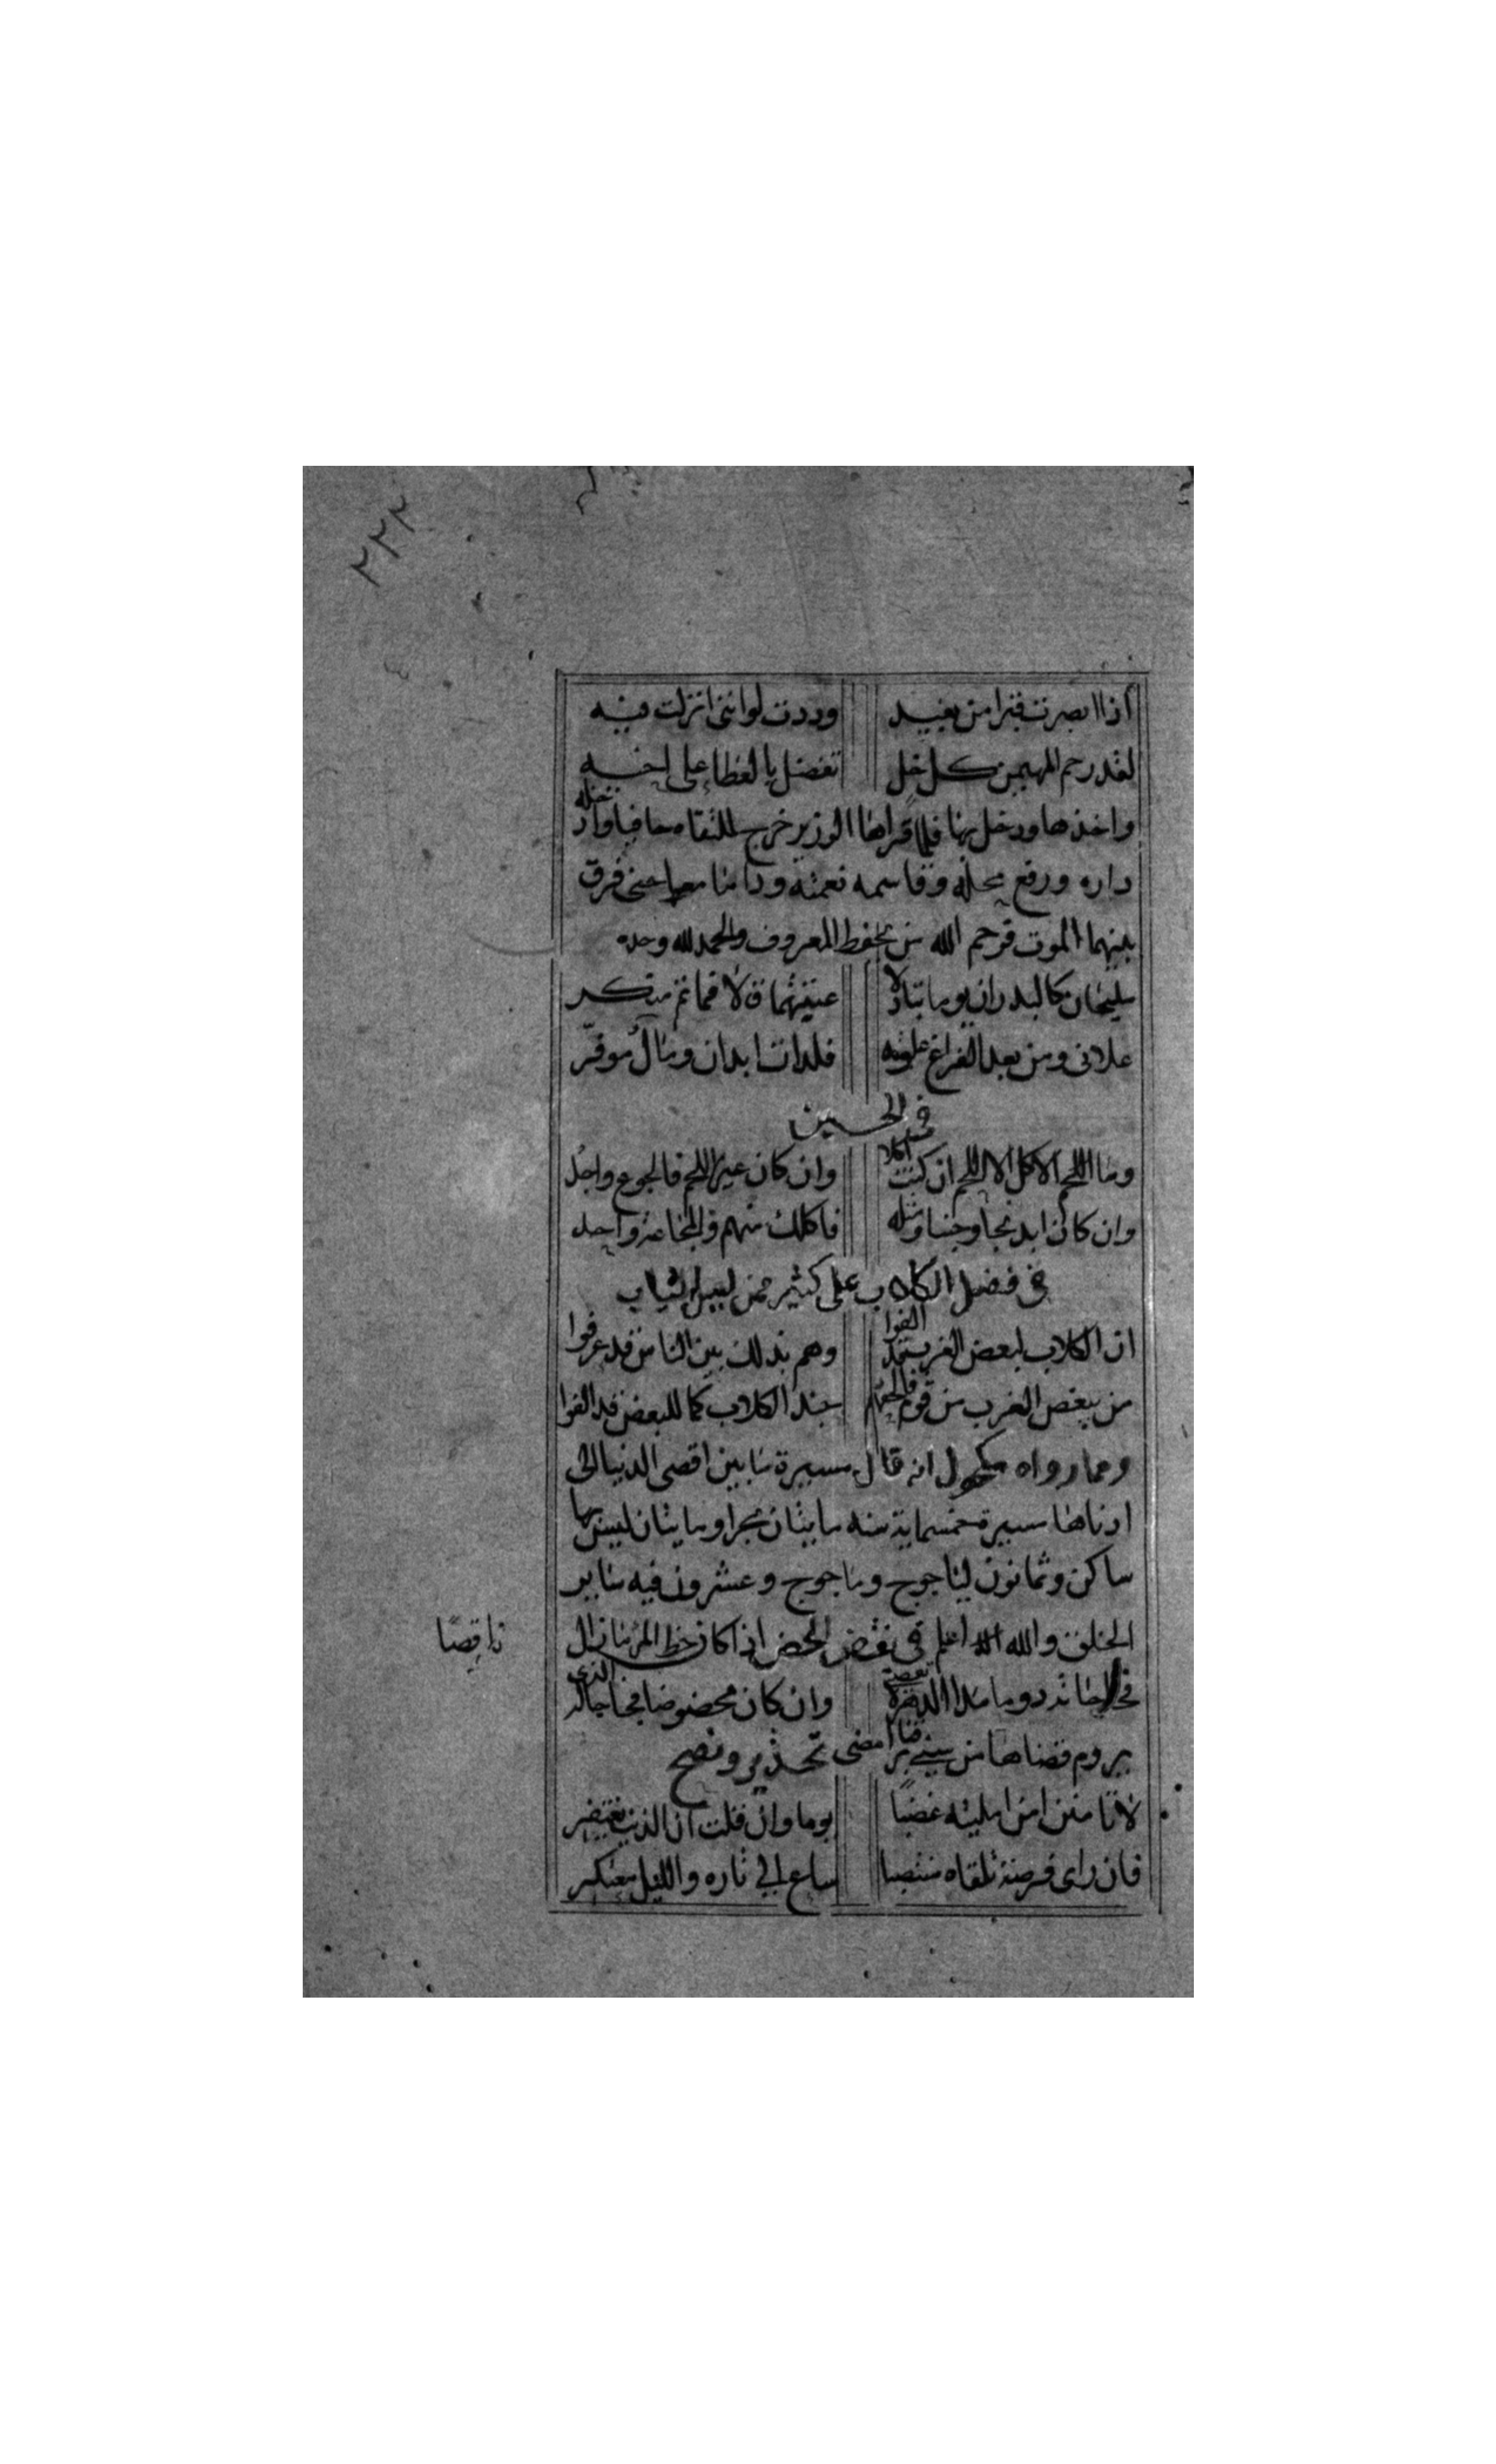 ٢٢٢
اذا ابصرت قبرا من بعيد وددت لو انني انزلت فيه
لقد رحم المهيمن كل خل تفضل بالعطا على اخيه
واخذها ودخل بها فلما قراها الوزير خرج للقاه حافيا وادخله
داره ورفع محله وقاسمه نعمته وداما معا حتى فرق
بينهما الموت فرحم الله من يحفظ المعروف والحمد لله وحده
مليحان كالبدران يوما تبادلا عتيقهما قالا فما ثم منكر
علاني ومن بعد الفراغ علوته فلدات ابدان ومال موفر
في الحسين
وما اللحم الاكل الا اللحم ان كنت اكلا وان كان غير اللحم فالجوع واجد
وان كان ابدنجا وجبنا ومثله فاكلك منهم والمجاعة واحد
في فضل الكلاب على كثير ممن لبس الثياب
ان الكلاب لبعض الغرب قد الفوا وهم بذلك بين الناس قد عرفوا
من يبغض الغرب من قوم فالحقهم بجند الكلاب كما للبعض قد الفوا
ومما رواه مكحول انه قال مسيرة ما بين اقصى الدنيا الى
ادناها مسيرة خمسماية سنه مايتان بحرا ومايتان ليس بها
ساكن وثمانون لياجوج وماجوج وعشرون فيه ساير
الخلق والله اعلم في نقض المحض اذا كان حظ المرء نازال
ناقصا
وان كان محضوضا فحاجاته الذي
يروم قضاها من امضى تحذير ونصح
لا تامنن امرا ابليته غضبا يوما وان قلت ان الذنب يغتفر
فان راى فرصة تلقاه منتصبا ساع الى ثاره والليل معتكر